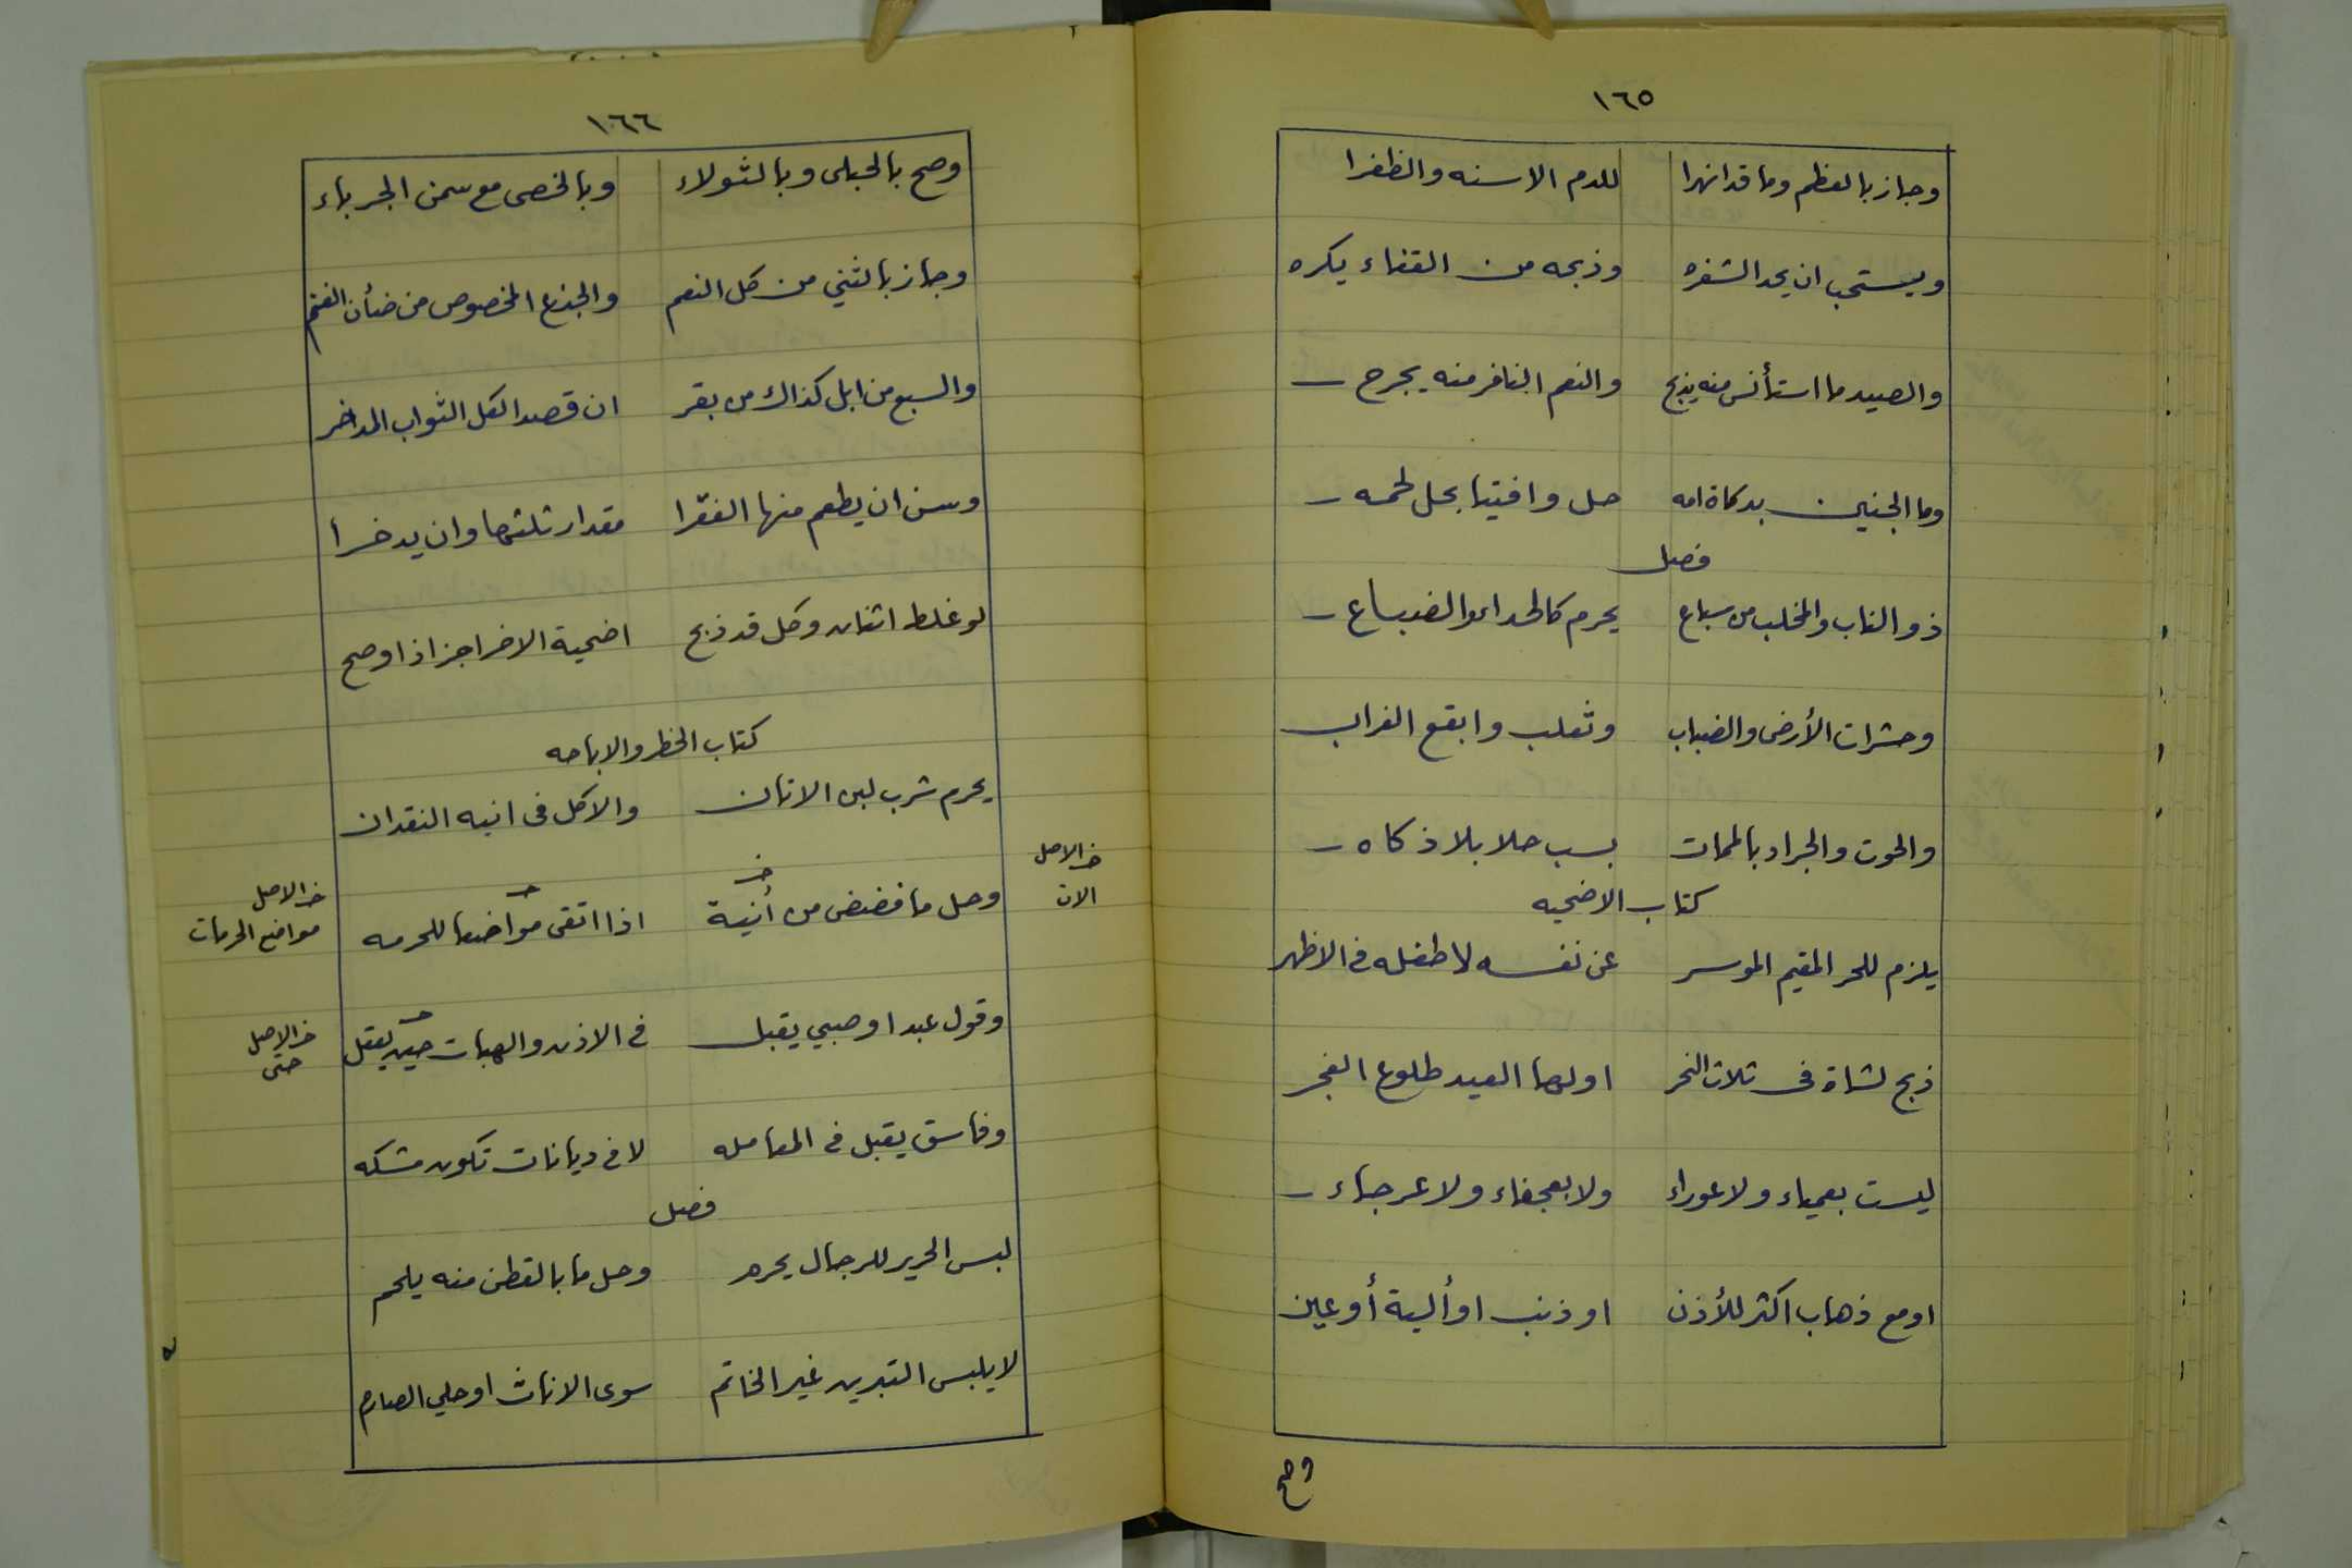 ١٦٥
وجاز بالعظم وما قد انهرا للدم الا سنه والظفرا
ويستحب ان يحد الشفره وذبحه من القفاء يكره
والصيد ما استأنس منه يذبح والنعم النافر منه يجرح
وما الجنين بدكاة امه حل وافتيا بحل لحمه
فصل
ذو الناب والمخلب من سباع يحرم كالحداء والضباع
وحشرات الأرض والضباب وثعلب وابقع الغراب
والحوت والجراد بالممات بسبب حلا بلا ذكاه
كتاب الاضحيه
يلزم للحر المقيم الموسر عن نفسه لا طفله فى الاظهر
ذبح لشاة فى ثلاث النحر اولها العيد طلوع الفجر
ليست بعمياء ولا عوراء ولا بعجفاء ولا عرجاء
او مع ذهاب اكثر للأذن او ذنب او ألية أو عين
وصح
١٦٦
وصح بالحبلى وبالثولاء وبالخصى مع سمن الجرباء
وجاز بالثني من كل النعم والجذع المخصوص من ضأن الغنم
والسبع من ابل كذاك من بقر ان قصد الكل الثواب المدخر
وسن ان يطعم منها الفقرا مقدار ثلثها وان يدخرا
لو غلط اثنان وكل قد ذبح اضحية الاخر اجز اذا وصح
كتاب الحظر والاباحه
يحرم شرب لبن الاتان والاكل فى انيه النقدان
وحل ما فضض من أنية اذا اتقى مواضعا للحرمه
خـ الاصل
الان
خـ الاصل
مواضع الحرمات
وقول عبد او صبي يقبل فى الاذن والهبات حين يعقل
خـ الاصل
حتى
وفاسق يقبل فى المعامله لا فى ديانات تكون مشكله
فصل
لبس الحرير للرجال يحرم وحل ما بالقطن منه يلحم
لا يلبس التبرين غير الخاتم سوى الاناث او حلي الصارم